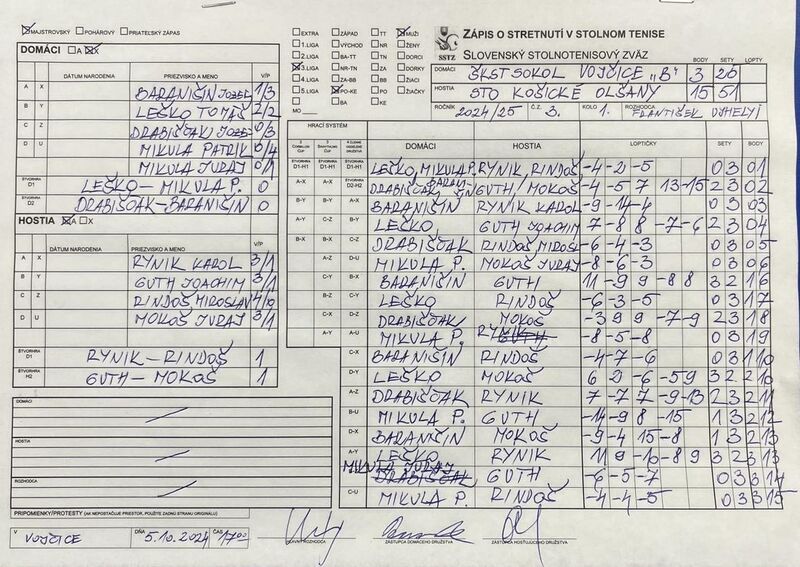 MAJSTROVSKÝ POHÁROVÝ PRIATEĽSKÝ ZÁPAS
DOMÁCI A X
DÁTUM NARODENIA PRIEZVISKO A MENO V/P
A X BARANIŠIN JOZEF 1/3
B Y LEŠKO TOMÁŠ 2/2
C Z DRABIŠČAK JOZEF 0/3
D U MIKULA PATRIK 0/4
MIKULA JURAJ 0/1
ŠTVORHRA D1 LEŠKO - MIKULA P. 0
ŠTVORHRA D2 DRABIŠČAK - BARANIŠIN 0
HOSTIA A X
DÁTUM NARODENIA PRIEZVISKO A MENO V/P
A X RYNIK KAROL 3/1
B Y GUTH JOACHIM 3/1
C Z RINDOŠ MIROSLAV 4/0
D U MOKOŠ JURAJ 3/1
ŠTVORHRA D1 RYNIK - RINDOŠ 1
ŠTVORHRA H2 GUTH - MOKOŠ 1
DOMÁCI
HOSTIA
ROZHODCA
PRIPOMIENKY/PROTESTY (AK NEPOSTAČUJE PRIESTOR, POUŽITE ZADNÚ STRANU ORIGINÁLU)
V VOJČICE DŇA 5.10.2024 ČAS 1700
EXTRA ZÁPAD TT MUŽI
1.LIGA VÝCHOD NR ŽENY
2.LIGA BA-TT TN DORCI
3.LIGA NR-TN ZA DORKY
4.LIGA ZA-BB BB ŽIACI
5.LIGA PO-KE PO ŽIAČKY
BA KE
MO
SSTZ
ZÁPIS O STRETNUTÍ V STOLNOM TENISE
SLOVENSKÝ STOLNOTENISOVÝ ZVÄZ
BODY SETY LOPTY
DOMÁCI ŠKST SOKOL VOJČICE "B" 3 26
HOSTIA STO KOŠICKÉ OLŠANY 15 51
ROČNÍK 2024/25 Č.Z. 3. KOLO 1. ROZHODCA FRANTIŠEK UJHELYI
HRACÍ SYSTÉM DOMÁCI HOSTIA LOPTIČKY SETY BODY
D1-H1 D1-H1 D1-H1 LEŠKO, MIKULA P. RYNIK, RINDOŠ -4 -2 -5 0 3 0 1
A-X A-X D2-H2 DRABIŠČAK, BARANIŠIN GUTH, MOKOŠ -4 -5 7 13 -15 2 3 0 2
B-Y B-Y A-X BARANIŠIN RYNIK KAROL -9 -14 -4 0 3 0 3
A-Y C-Z B-Y LEŠKO GUTH JOACHIM 7 -8 8 -7 -6 2 3 0 4
B-X B-X C-Z DRABIŠČAK RINDOŠ MIROSL. -6 -4 -3 0 3 0 5
A-Z D-U MIKULA P. MOKOŠ JURAJ -8 -6 -3 0 3 0 6
C-Y B-X BARANIŠIN GUTH 11 -9 9 -8 8 3 2 1 6
B-Z C-Y LEŠKO RINDOŠ -6 -3 -5 0 3 1 7
C-X D-Z DRABIŠČAK MOKOŠ -3 9 9 -7 -9 2 3 1 8
A-Y A-U MIKULA P. RYNIK -8 -5 -8 0 3 1 9
C-X BARANIŠIN RINDOŠ -4 -7 -6 0 3 1 10
D-Y LEŠKO MOKOŠ 6 2 -6 -5 9 3 2 2 10
A-Z DRABIŠČAK RYNIK 7 -7 7 -9 -13 2 3 2 11
B-U MIKULA P. GUTH -14 -9 8 -15 1 3 2 12
D-X BARANIŠIN MOKOŠ -9 -4 15 -8 1 3 2 13
A-Y LEŠKO RYNIK 11 9 -10 -8 9 3 2 3 13
MIKULA JURAJ GUTH -6 -5 -7 0 3 3 14
C-U MIKULA P. RINDOŠ -4 -4 -5 0 3 3 15
HLAVNÝ ROZHODCA ZÁSTUPCA DOMÁCEHO DRUŽSTVA ZÁSTUPCA HOSŤUJÚCEHO DRUŽSTVA